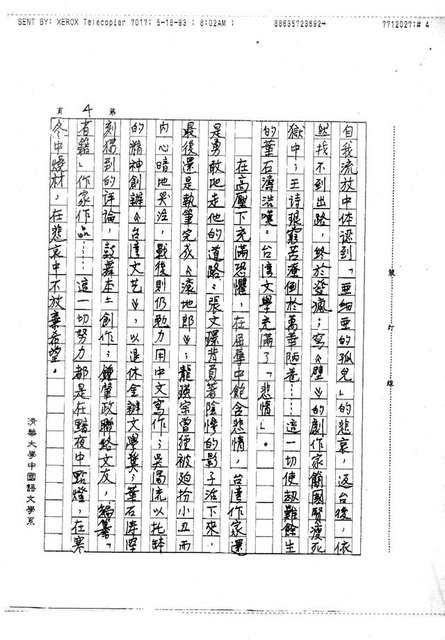 SENT BY: XEROX Telecopier 7017; 5-18-93 ; 8:02AM ; 88635723692→ 7712027;# 4
裝 訂 線
第 4 頁
自我流放中体認到「亞細亞的孤兒」的悲哀，返台後，依
然找不到出路，終於發瘋；寫《壁》的劇作家簡國賢瘦死
獄中；王詩琅窮苦潦倒於萬華陋巷……這一切使劫難餘生
的葉石濤浩嘆。台湾文學充滿了「悲情」。
在高壓下充滿恐懼，在屈辱中飽含悲情，台湾作家還
是勇敢地走他的道路：張文環背負著陰慘的影子活下來，
最後還是執筆完成《滾地郎》；龍瑛宗曾經被迫扮小丑而
內心暗地哭泣，戰後則仍勤力用中文寫作；吳濁流以托缽
的精神創辦《台湾文艺》，以退休金辦文學獎；葉石濤堅
刻獨到的評論，鼓舞本土創作；鍾肇政聯絡文友，編纂「
者籍」作家作品……這一切努力都是在黯夜中點燈，在寒
冬中燒材，在悲哀中不放棄希望。
清華大學中國語文學系